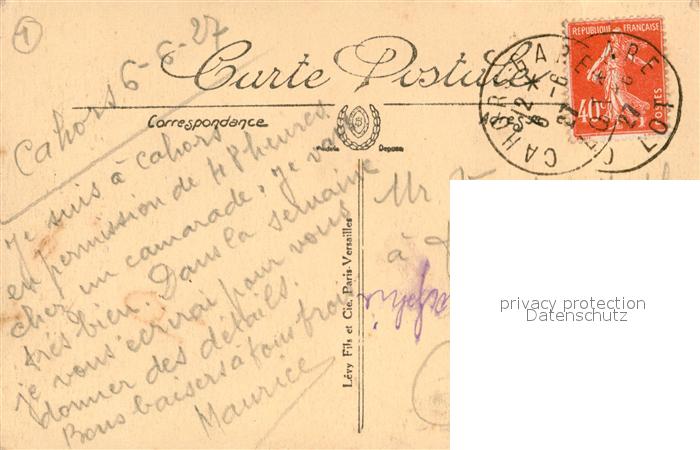 1
Carte Postale
Correspondance
Adresse
Modèle Déposé
REPUBLIQUE FRANÇAISE
40c
POSTES
CAHORS GARE
LOT
Cahors 6-6-27
Je suis à Cahors
en permission de 48 heures
chez un camarade. Je vais
très bien. Dans la semaine
je vous écrirai pour vous
donner des détails.
Bons baisers à tous trois
Maurice
Lévy Fils et Cie, Paris-Versailles
Mr
à
privacy protection
Datenschutz